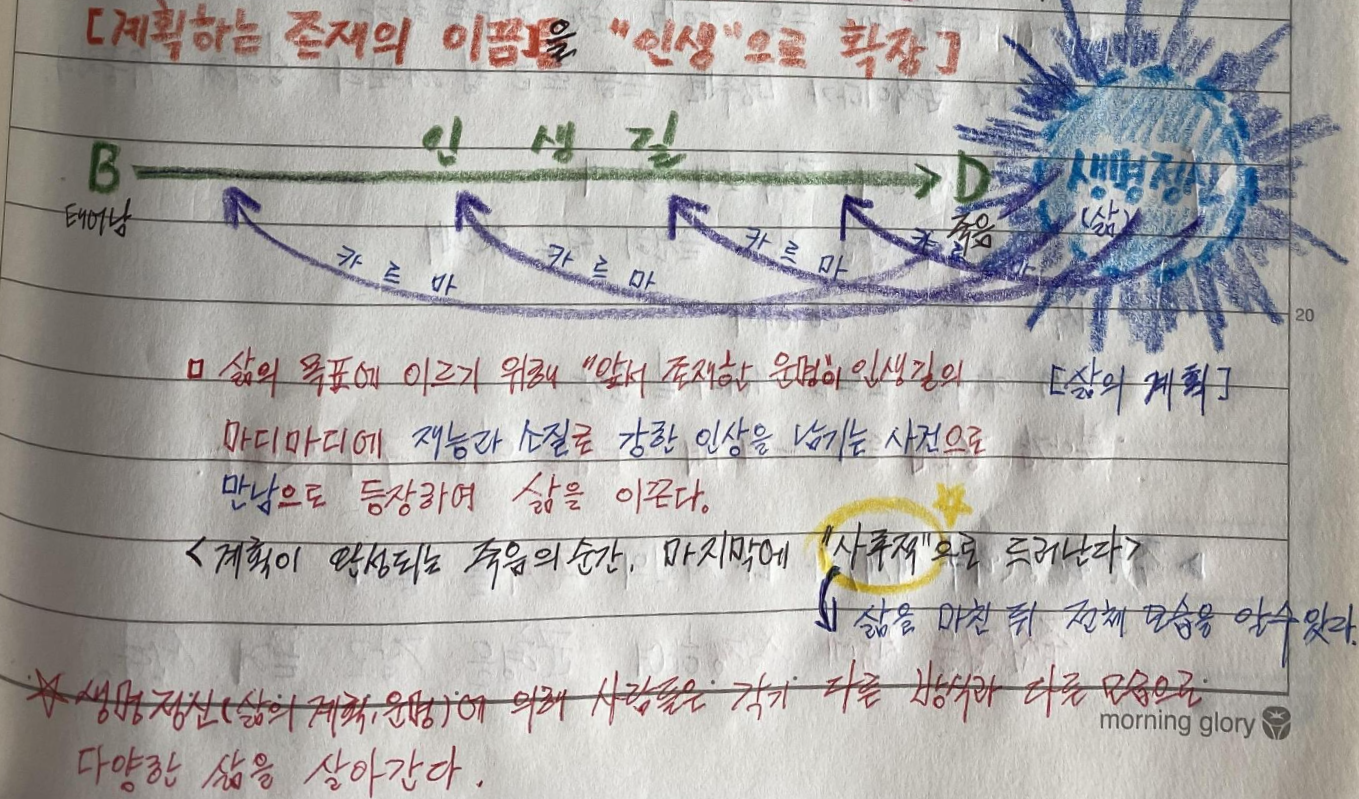 [계획하는 존재의 이끎을 "인생"으로 확장]
인 생 길
B D
태어남 죽음
생명정신
(삶)
카 르 마 카 르 마 카 르 마 카 르 마
20
ㅁ 삶의 목표에 이르기 위해 "앞서 존재한 운명"이 인생길의
[삶의 계획]
마디마디에 재능과 소질로 강한 인상을 남기는 사건으로
만남으로 등장하여 삶을 이끈다.
<계획이 완성되는 죽음의 순간, 마지막에 "사후적"으로 드러난다>
삶을 마친 뒤 전체 모습을 알 수 있다.
☆ 생명정신(삶의 계획, 운명)에 의해 사람들은 각기 다른 방식과 다른 모습으로
morning glory
다양한 삶을 살아간다.